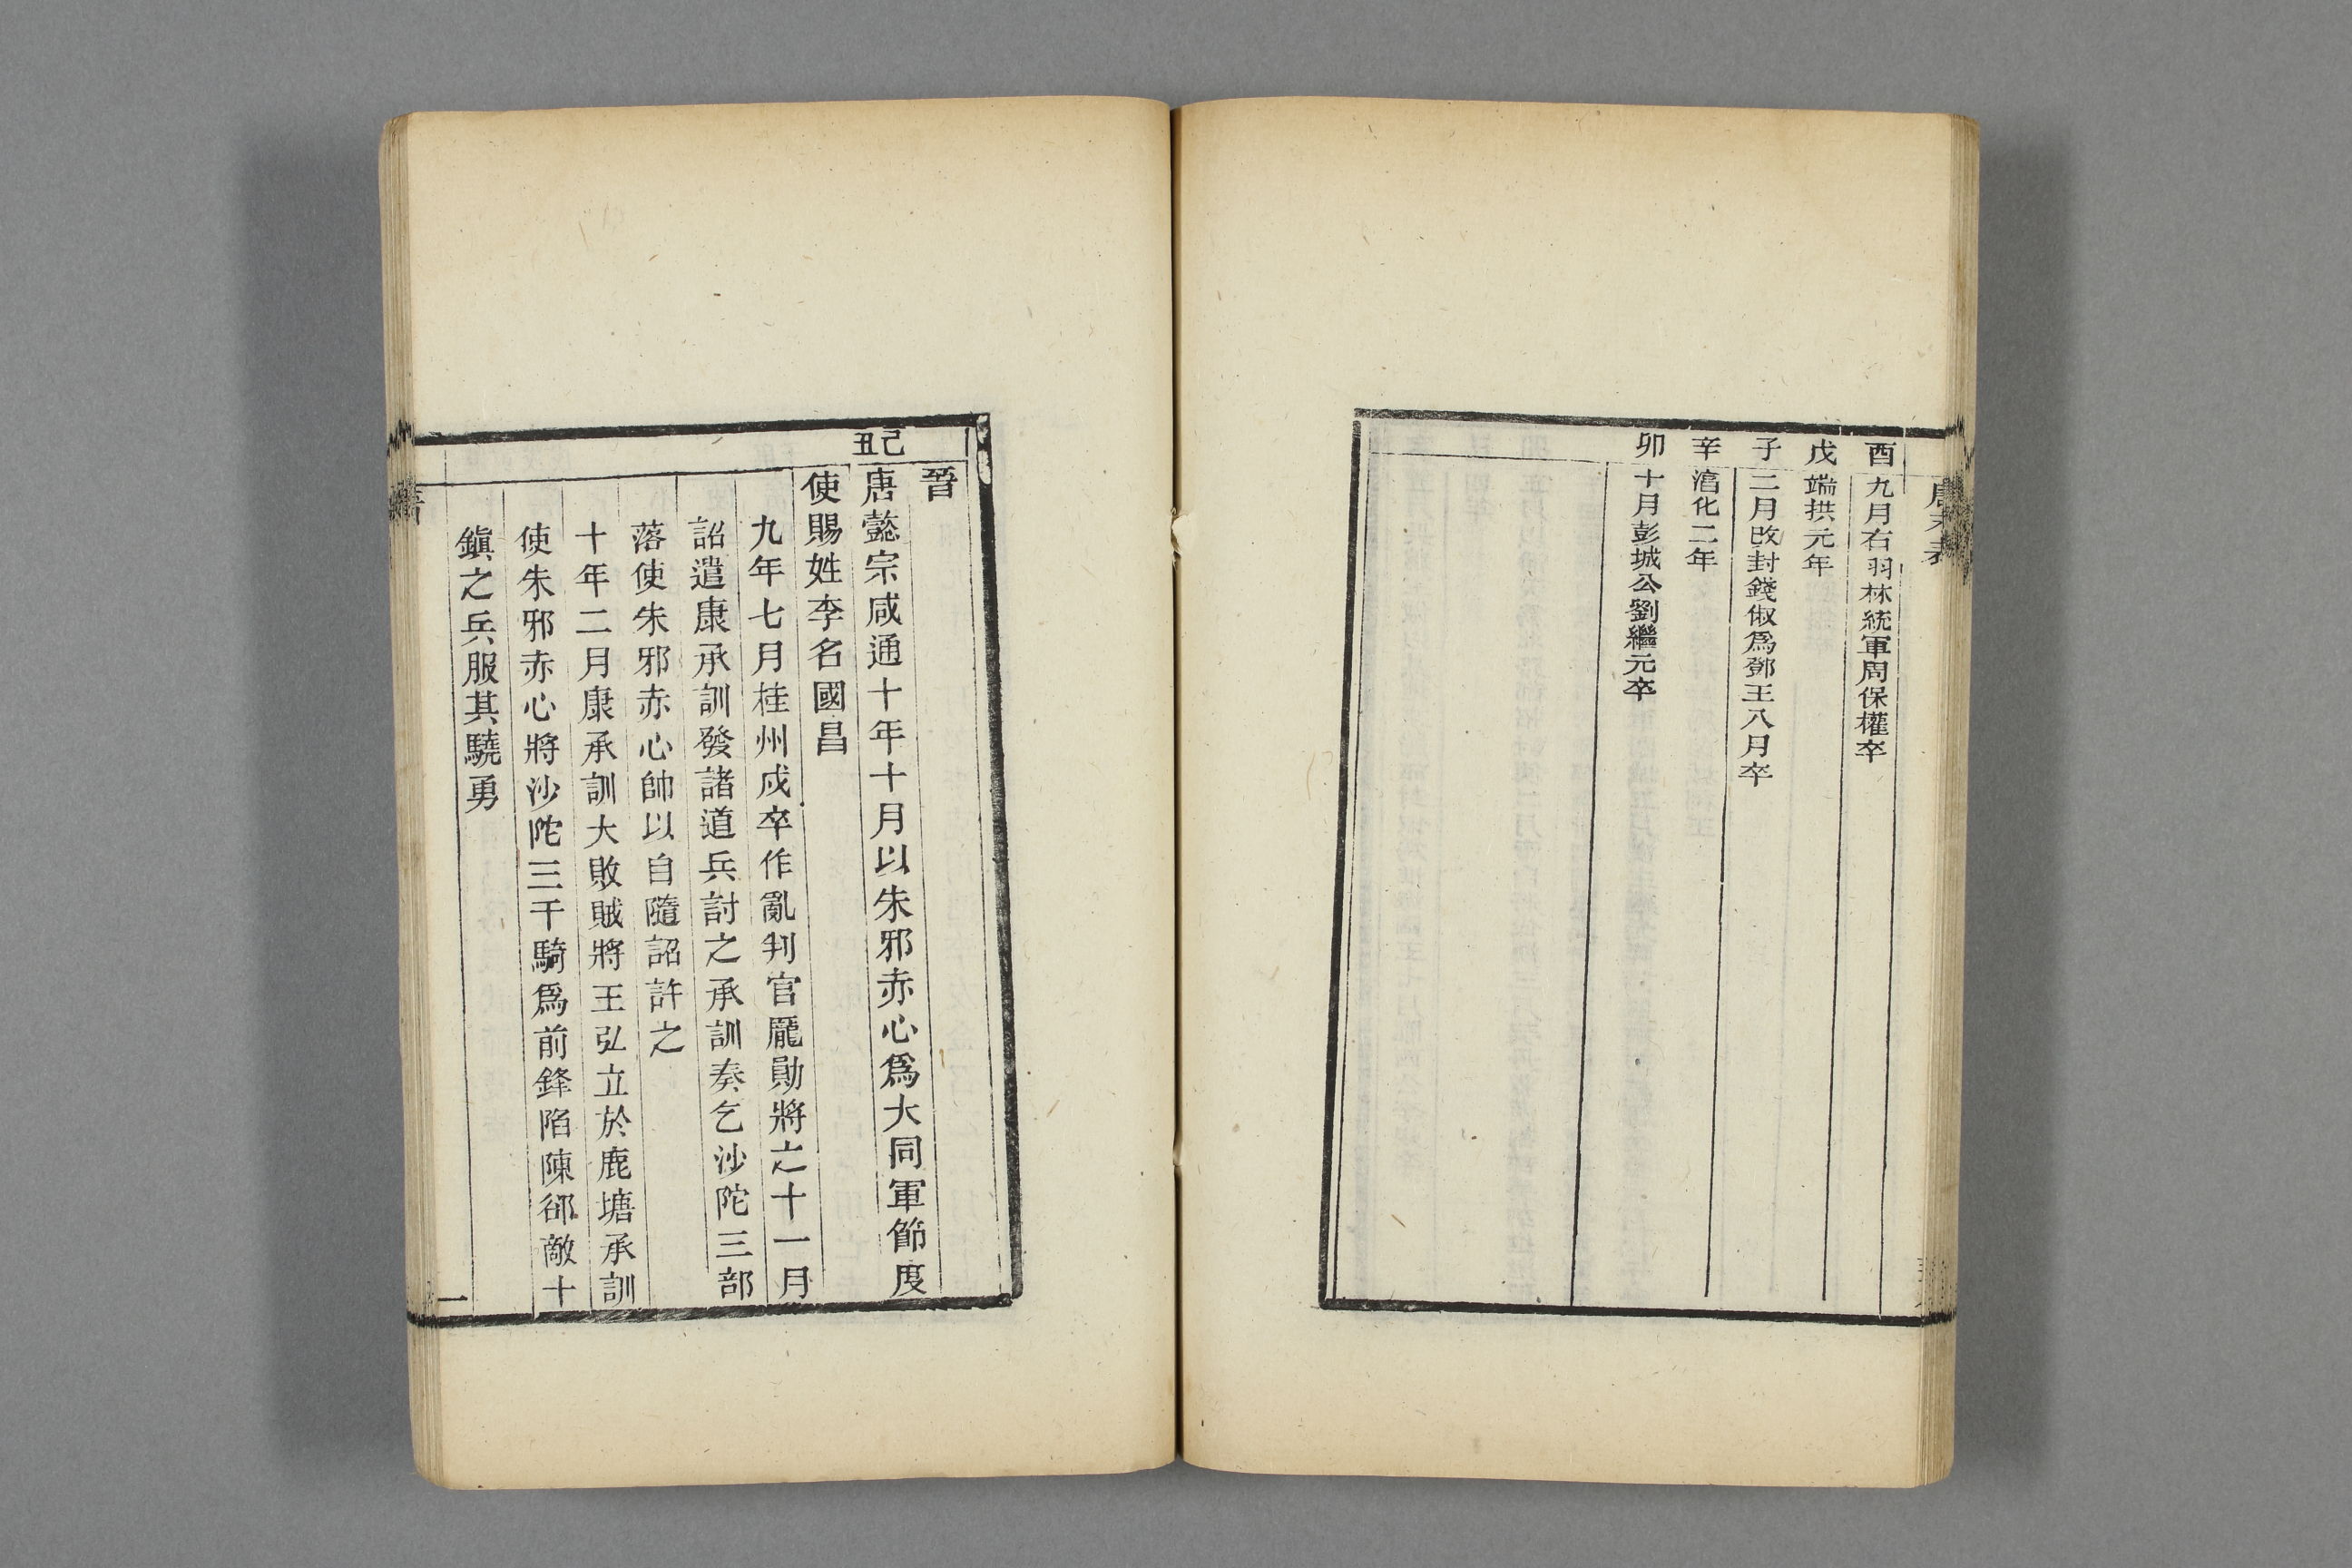 唐末表
酉 九月右羽林統軍周保權卒
戊 端拱元年
子 二月改封錢俶爲鄧王八月卒
辛 淳化二年
卯 十月彭城公劉繼元卒
晉
己丑 唐懿宗咸通十年十月以朱邪赤心爲大同軍節度
使賜姓李名國昌
九年七月桂州戍卒作亂判官龎勛將之十一月
詔遣康承訓發諸道兵討之承訓奏乞沙陀三部
落使朱邪赤心帥以自隨詔許之
十年二月康承訓大敗賊將王弘立於鹿塘承訓
使朱邪赤心將沙陀三千騎爲前鋒陷陳郤敵十
鎭之兵服其驍勇
一